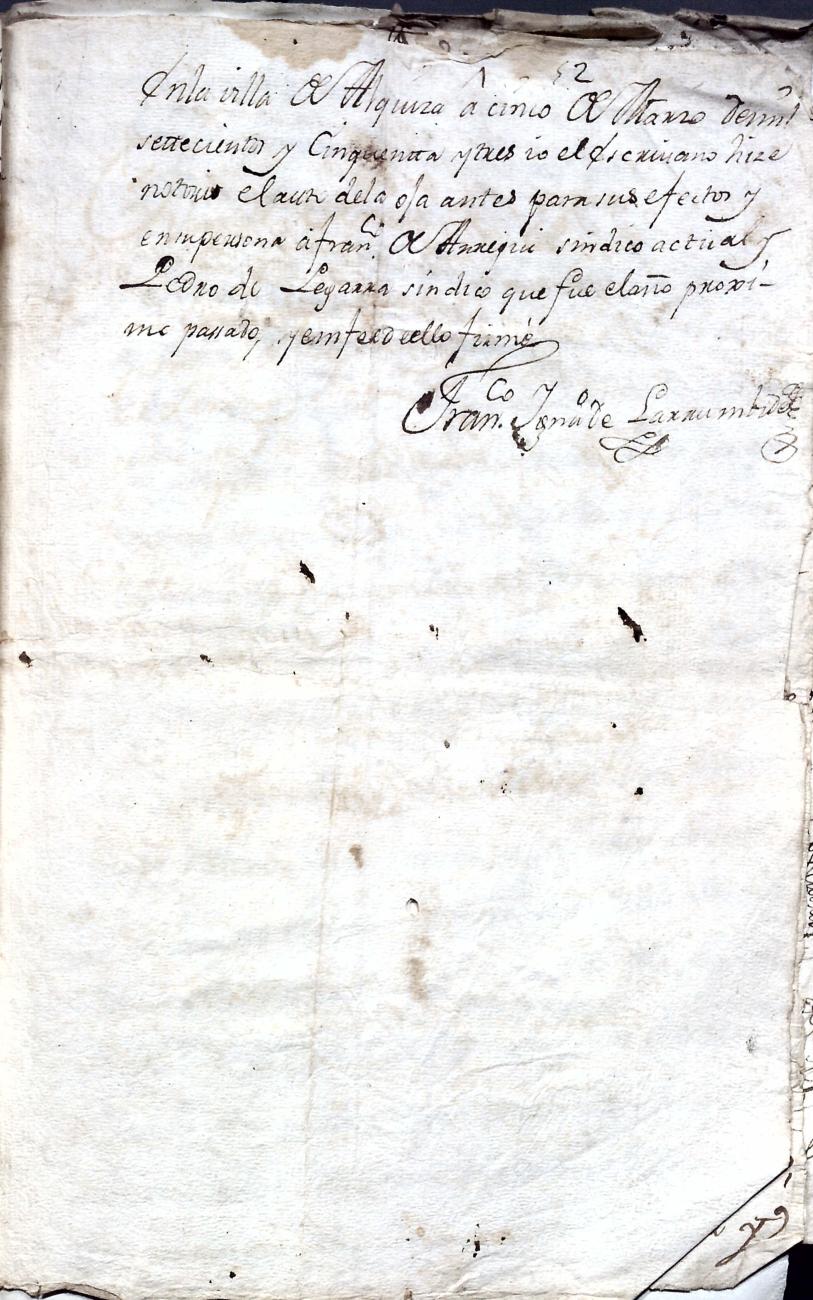 52
En la villa de Alquiza a cinco de Marzo de mil
settecientos y Cinquentta y tres io el Escrivano hize
notorio el auto de la oja antes para sus efectos y
en su persona a fran.co de Arregui sindico actual y
Pedro de Legarra sindico que fue el año proxi-
mo passado, y en fee de ello firmé
Fran.co Ign.o de Larrumbide